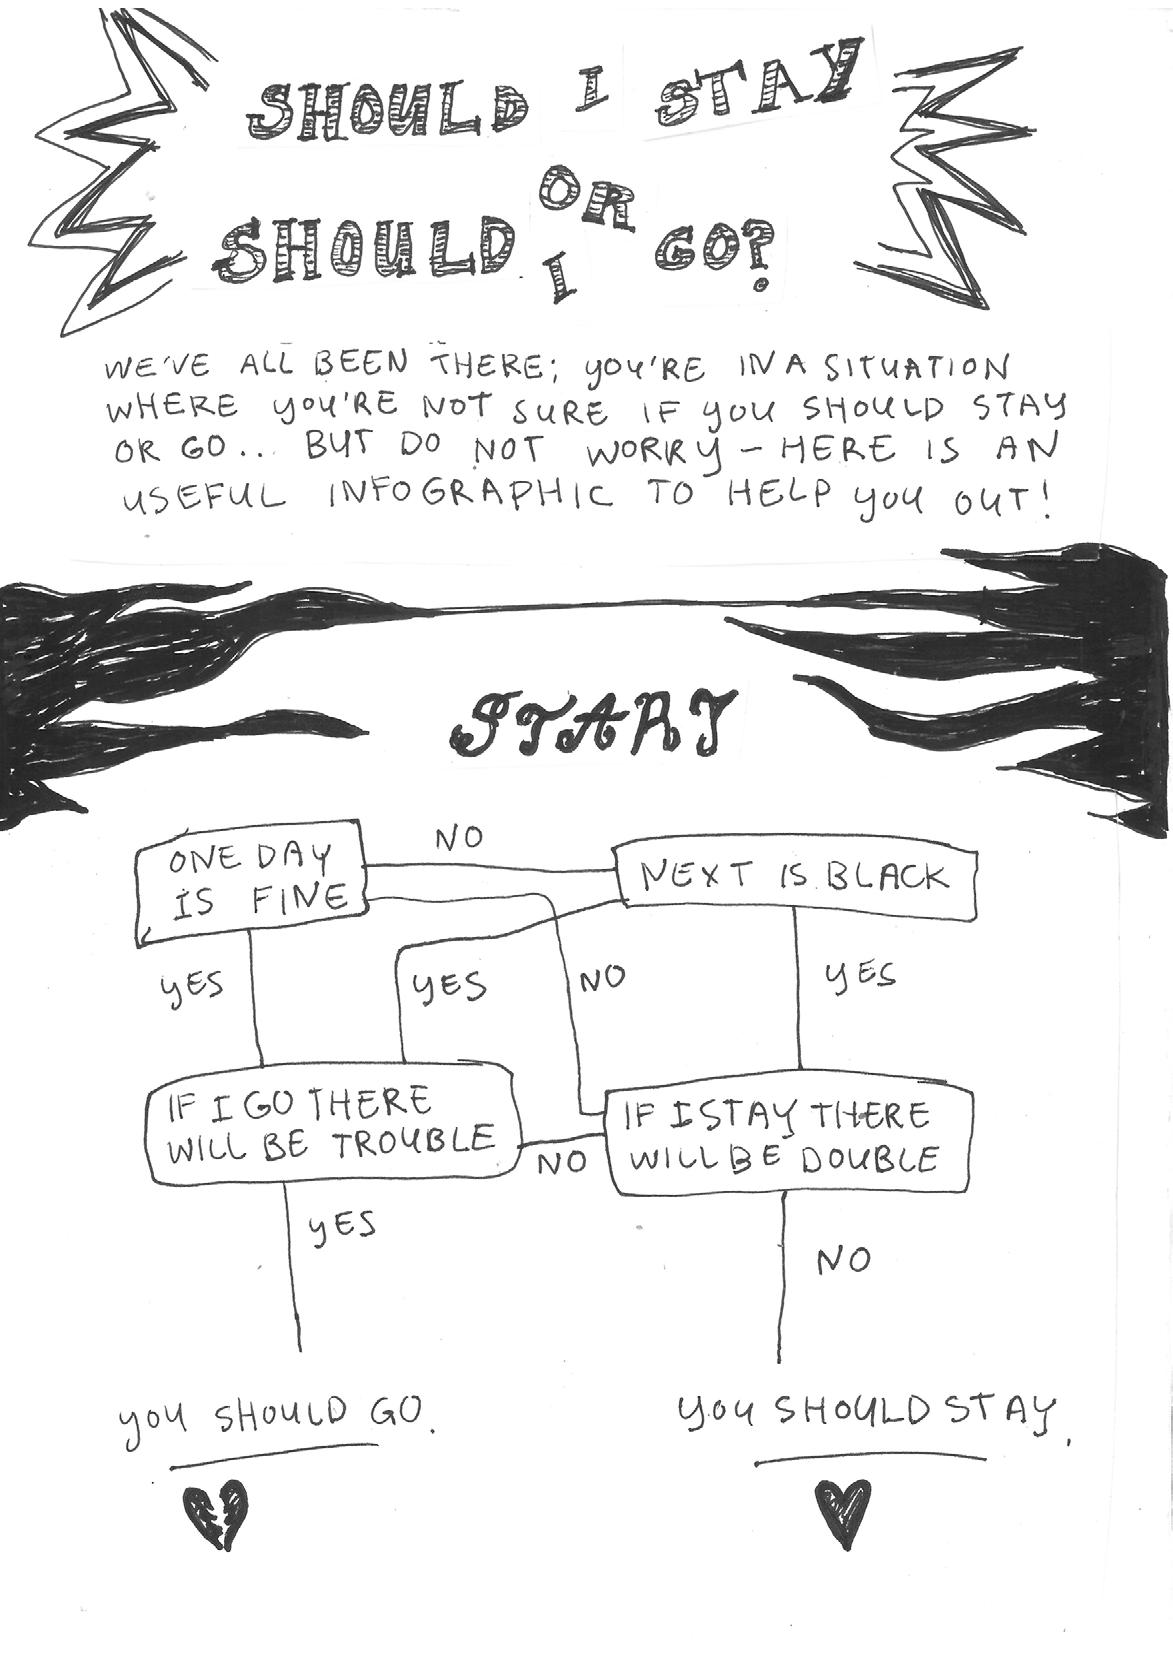 SHOULD I STAY
OR
SHOULD I GO?
WE'VE ALL BEEN THERE; YOU'RE IN A SITUATION
WHERE YOU'RE NOT SURE IF YOU SHOULD STAY
OR GO... BUT DO NOT WORRY – HERE IS AN
USEFUL INFOGRAPHIC TO HELP YOU OUT!
START
ONE DAY
IS FINE
NO
NEXT IS BLACK
YES
YES
NO
YES
IF I GO THERE
WILL BE TROUBLE
NO
IF I STAY THERE
WILL BE DOUBLE
YES
NO
YOU SHOULD GO.
YOU SHOULD STAY.